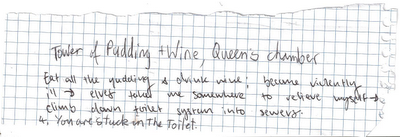 Tower of Pudding + Wine, Queen's chamber
Eat all the pudding & drink wine; become violently
ill → elves told me somewhere to relieve myself →
climb down toilet system into sewers.
4. You are stuck in The Toilet.